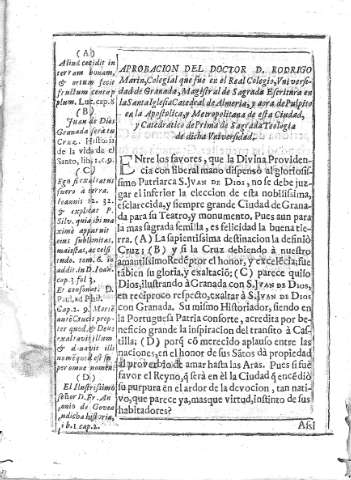 (A)
Aliud cecidit in
terram bonam,
& ortum fecit
fructum centu-
plum. Luc. cap. 8
(B)
Juan de Dios
Granada será tu
Cruz. Histor.
de la vida del
Santo, lib. 1. c. 9.
(C)
Ego si exaltatus
fuero à terra.
Ioannis 12. 32.
& explicat P.
Silv.
conforme. D.
Paul. ad Phil.
Cap. 2. 9.
(D)
El Ilustrissimo
señor D. Fr. An-
tonio de Govea
en dicha historia,
lib. 1. cap. 2.
APROBACION DEL DOCTOR D. RODRIGO
Marin, Colegial que fue en el Real Colegio, Vniversi-
dad de Granada, Magistral de Sagrada Escritura en
la Santa Iglesia Catedral de Almeria, y aora de Pulpito
en la Apostolica, y Metropolitana de esta Ciudad,
y Catedratico de Prima de Sagrada Teologia
de dicha Vniversidad.
ENtre los favores, que la Divina Providen-
cia con liberal mano dispensó al gloriosis-
simo Patriarca S. JVAN DE DIOS, no se debe juz-
gar el inferior la eleccion de esta nobilissima,
esclarecida, y siempre grande Ciudad de Grana-
da para su Teatro, y monumento. Pues aun para
la mas sagrada semilla, es felicidad la buena tie-
rra. (A) La sapientissima destinacion la definiò
Cruz; (B) y si la Cruz debiendo à nuestro
amantissimo Redẽptor el honor, y excelẽcia; fue
tãbien su gloria, y exaltaciò; (C) parece quiso
Dios, ilustrando à Granada con S. JVAN DE DIOS,
en reciproco respecto, exaltar à S. JVAN DE DIOS
con Granada. Su mismo Historiador, siendo en
la Portuguesa Patria conforte, acredita por be-
neficio grande la inspiracion del transito à Cas-
tilla; (D) porq̃ cõ merecido aplauso entre las
naciones, en el honor de sus Sãtos dà propiedad
al proverbio de amar hasta las Aras. Pues si fue
favor el Reyno, q̃ serà en èl la Ciudad q̃ encẽdiò
su purpura en el ardor de la devocion, tan nati-
vo, que parece ya, mas que virtud, instinto de sus
habitadores?
Assi